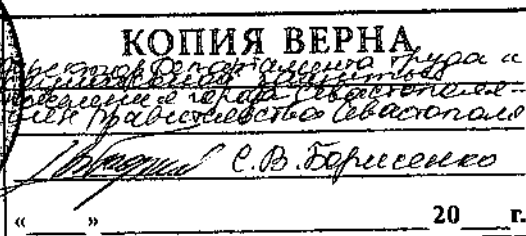 КОПИЯ ВЕРНА
Директор Департамента труда и
социальной защиты
населения города Севастополя -
член Правительства Севастополя
С.В. Борисенко
« » 20 г.